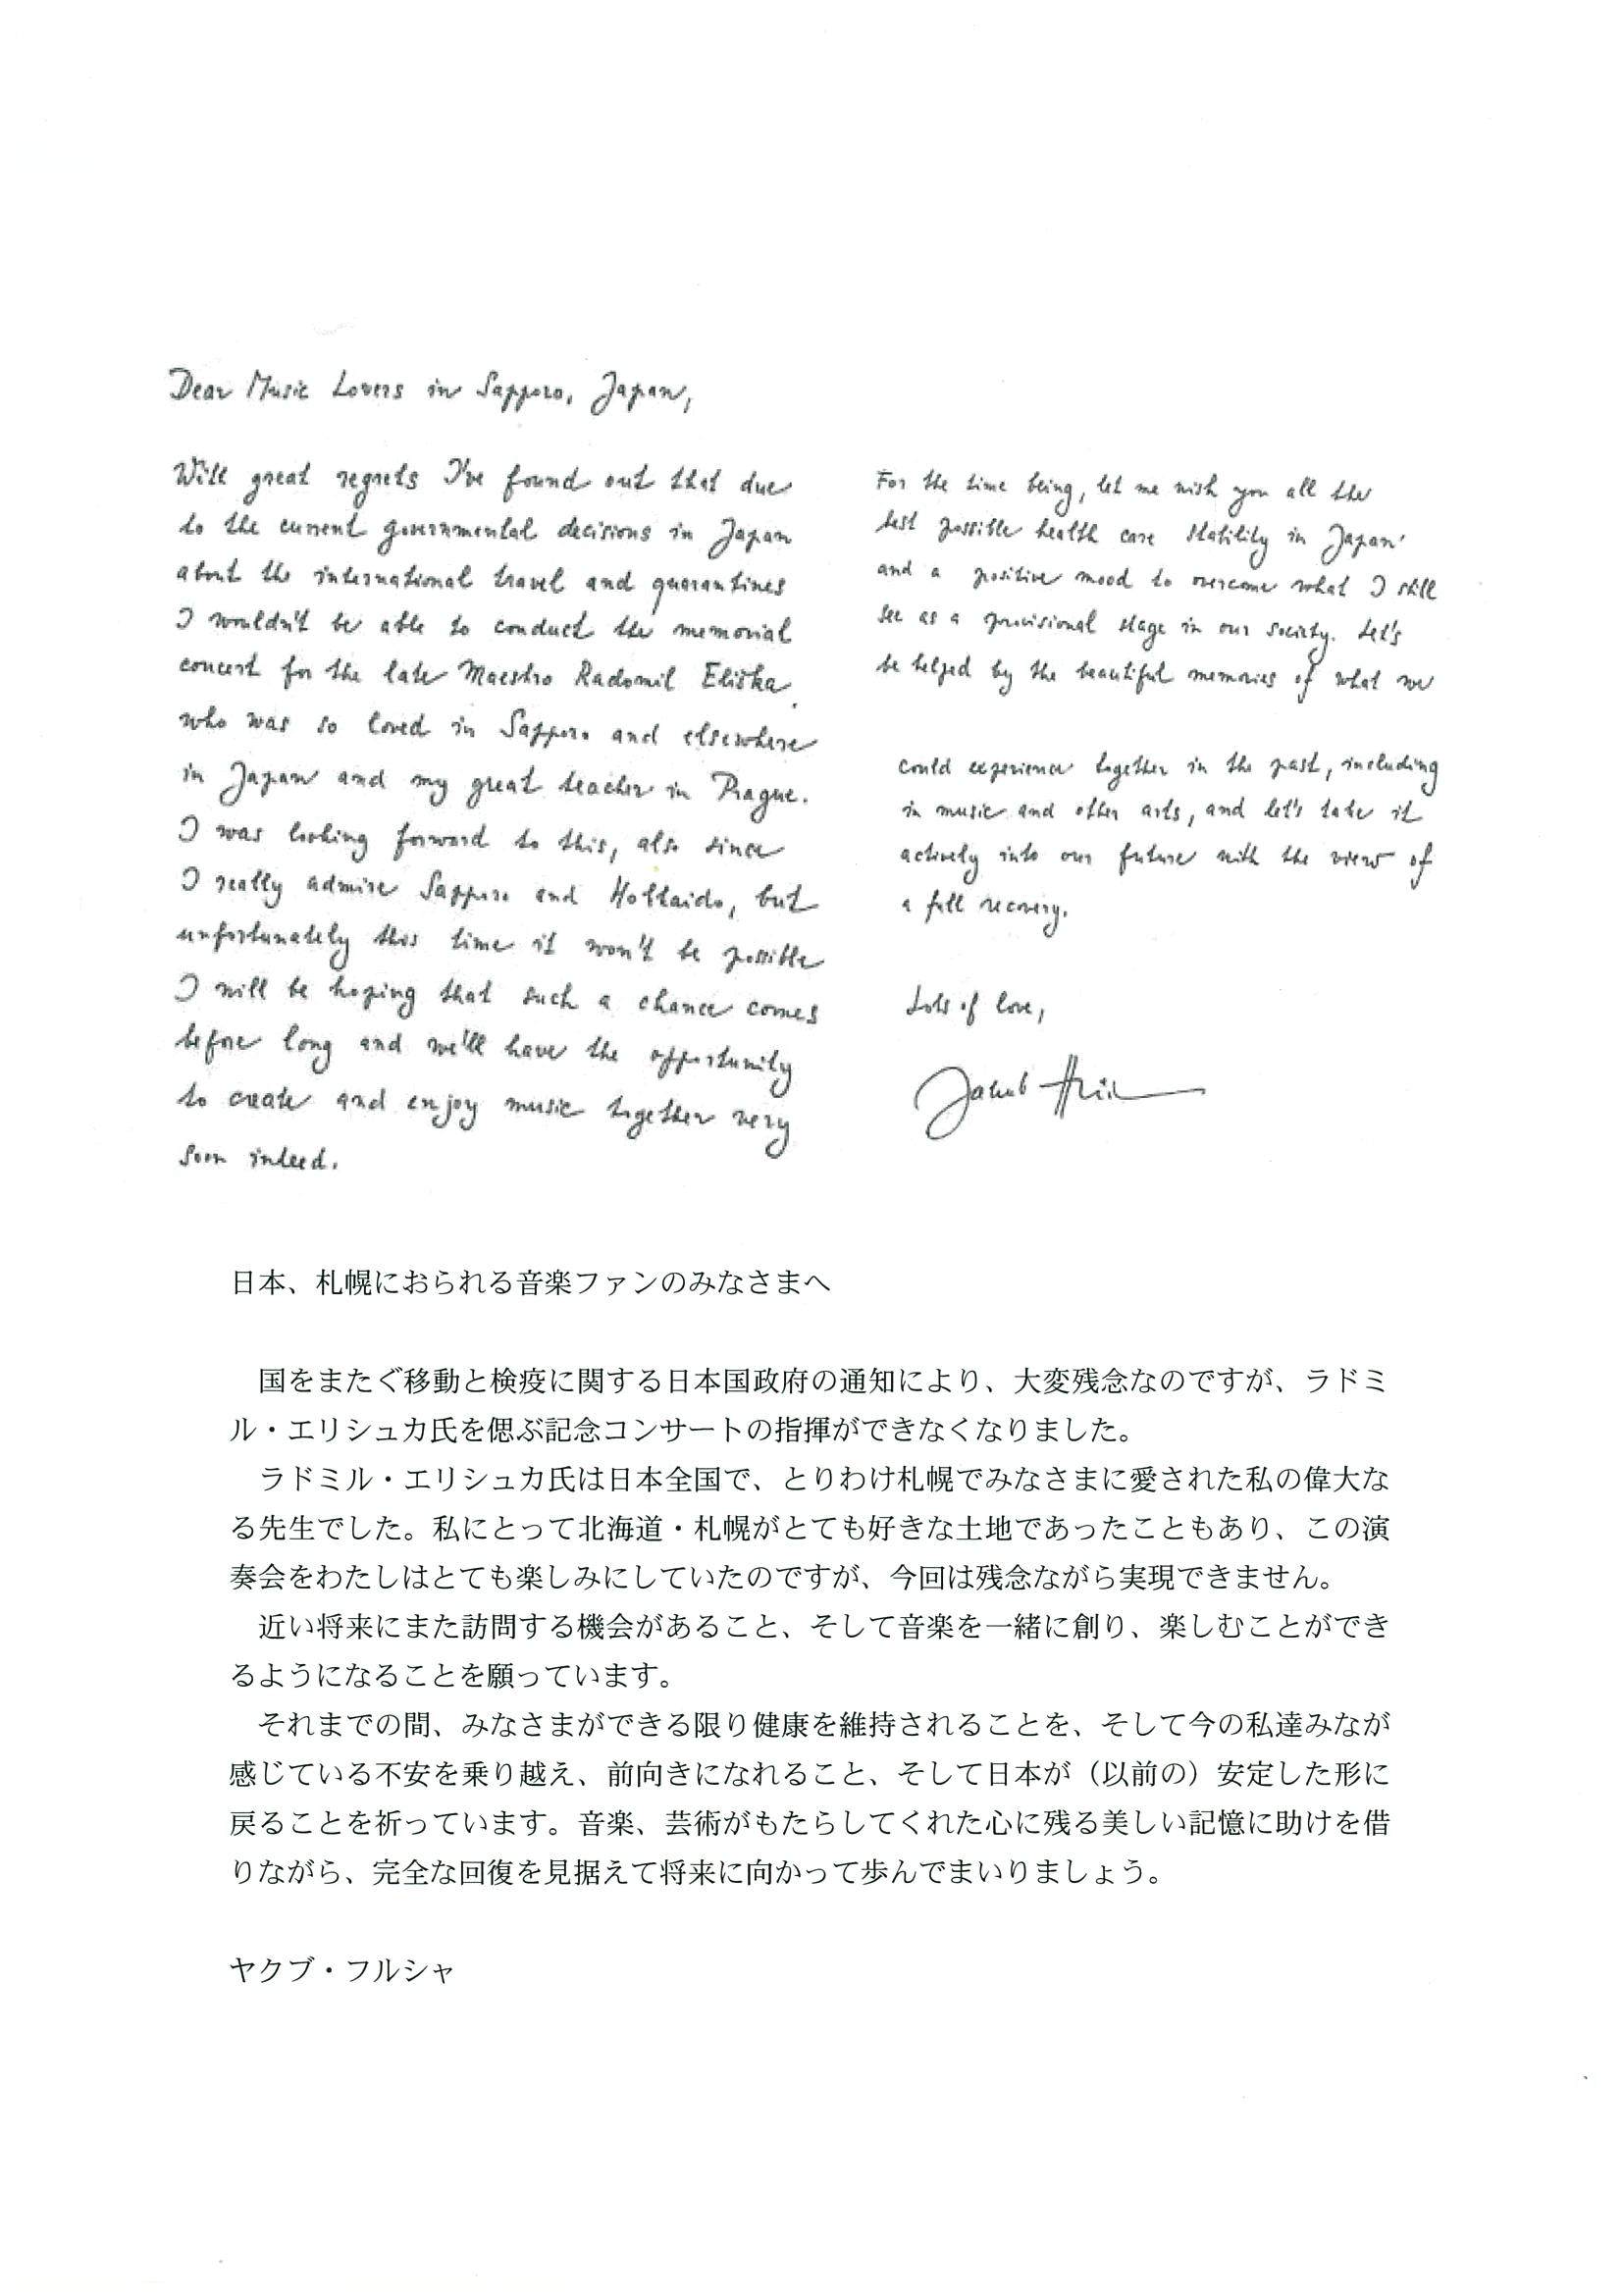 Dear Music Lovers in Sapporo, Japan,
With great regrets I've found out that due
to the current governmental decisions in Japan
about the international travel and quarantines
I wouldn't be able to conduct the memorial
concert for the late Maestro Radomil Eliška
who was so loved in Sapporo and elsewhere
in Japan and my great teacher in Prague.
I was looking forward to this, also since
I really admire Sapporo and Hokkaido, but
unfortunately this time it won't be possible
I will be hoping that such a chance comes
before long and we'll have the opportunity
to create and enjoy music together very
soon indeed.
For the time being, let me wish you all the
best possible health care stability in Japan
and a positive mood to overcome what I still
see as a provisional stage in our society. Let's
be helped by the beautiful memories of what we
could experience together in the past, including
in music and other arts, and let's take it
actively into our future with the view of
a full recovery.
Lots of love,
Jakub Hrůša
日本、札幌におられる音楽ファンのみなさまへ
国をまたぐ移動と検疫に関する日本国政府の通知により、大変残念なのですが、ラドミ
ル・エリシュカ氏を偲ぶ記念コンサートの指揮ができなくなりました。
ラドミル・エリシュカ氏は日本全国で、とりわけ札幌でみなさまに愛された私の偉大な
る先生でした。私にとって北海道・札幌がとても好きな土地であったこともあり、この演
奏会をわたしはとても楽しみにしていたのですが、今回は残念ながら実現できません。
近い将来にまた訪問する機会があること、そして音楽を一緒に創り、楽しむことができ
るようになることを願っています。
それまでの間、みなさまができる限り健康を維持されることを、そして今の私達みなが
感じている不安を乗り越え、前向きになれること、そして日本が（以前の）安定した形に
戻ることを祈っています。音楽、芸術がもたらしてくれた心に残る美しい記憶に助けを借
りながら、完全な回復を見据えて将来に向かって歩んでまいりましょう。
ヤクブ・フルシャ